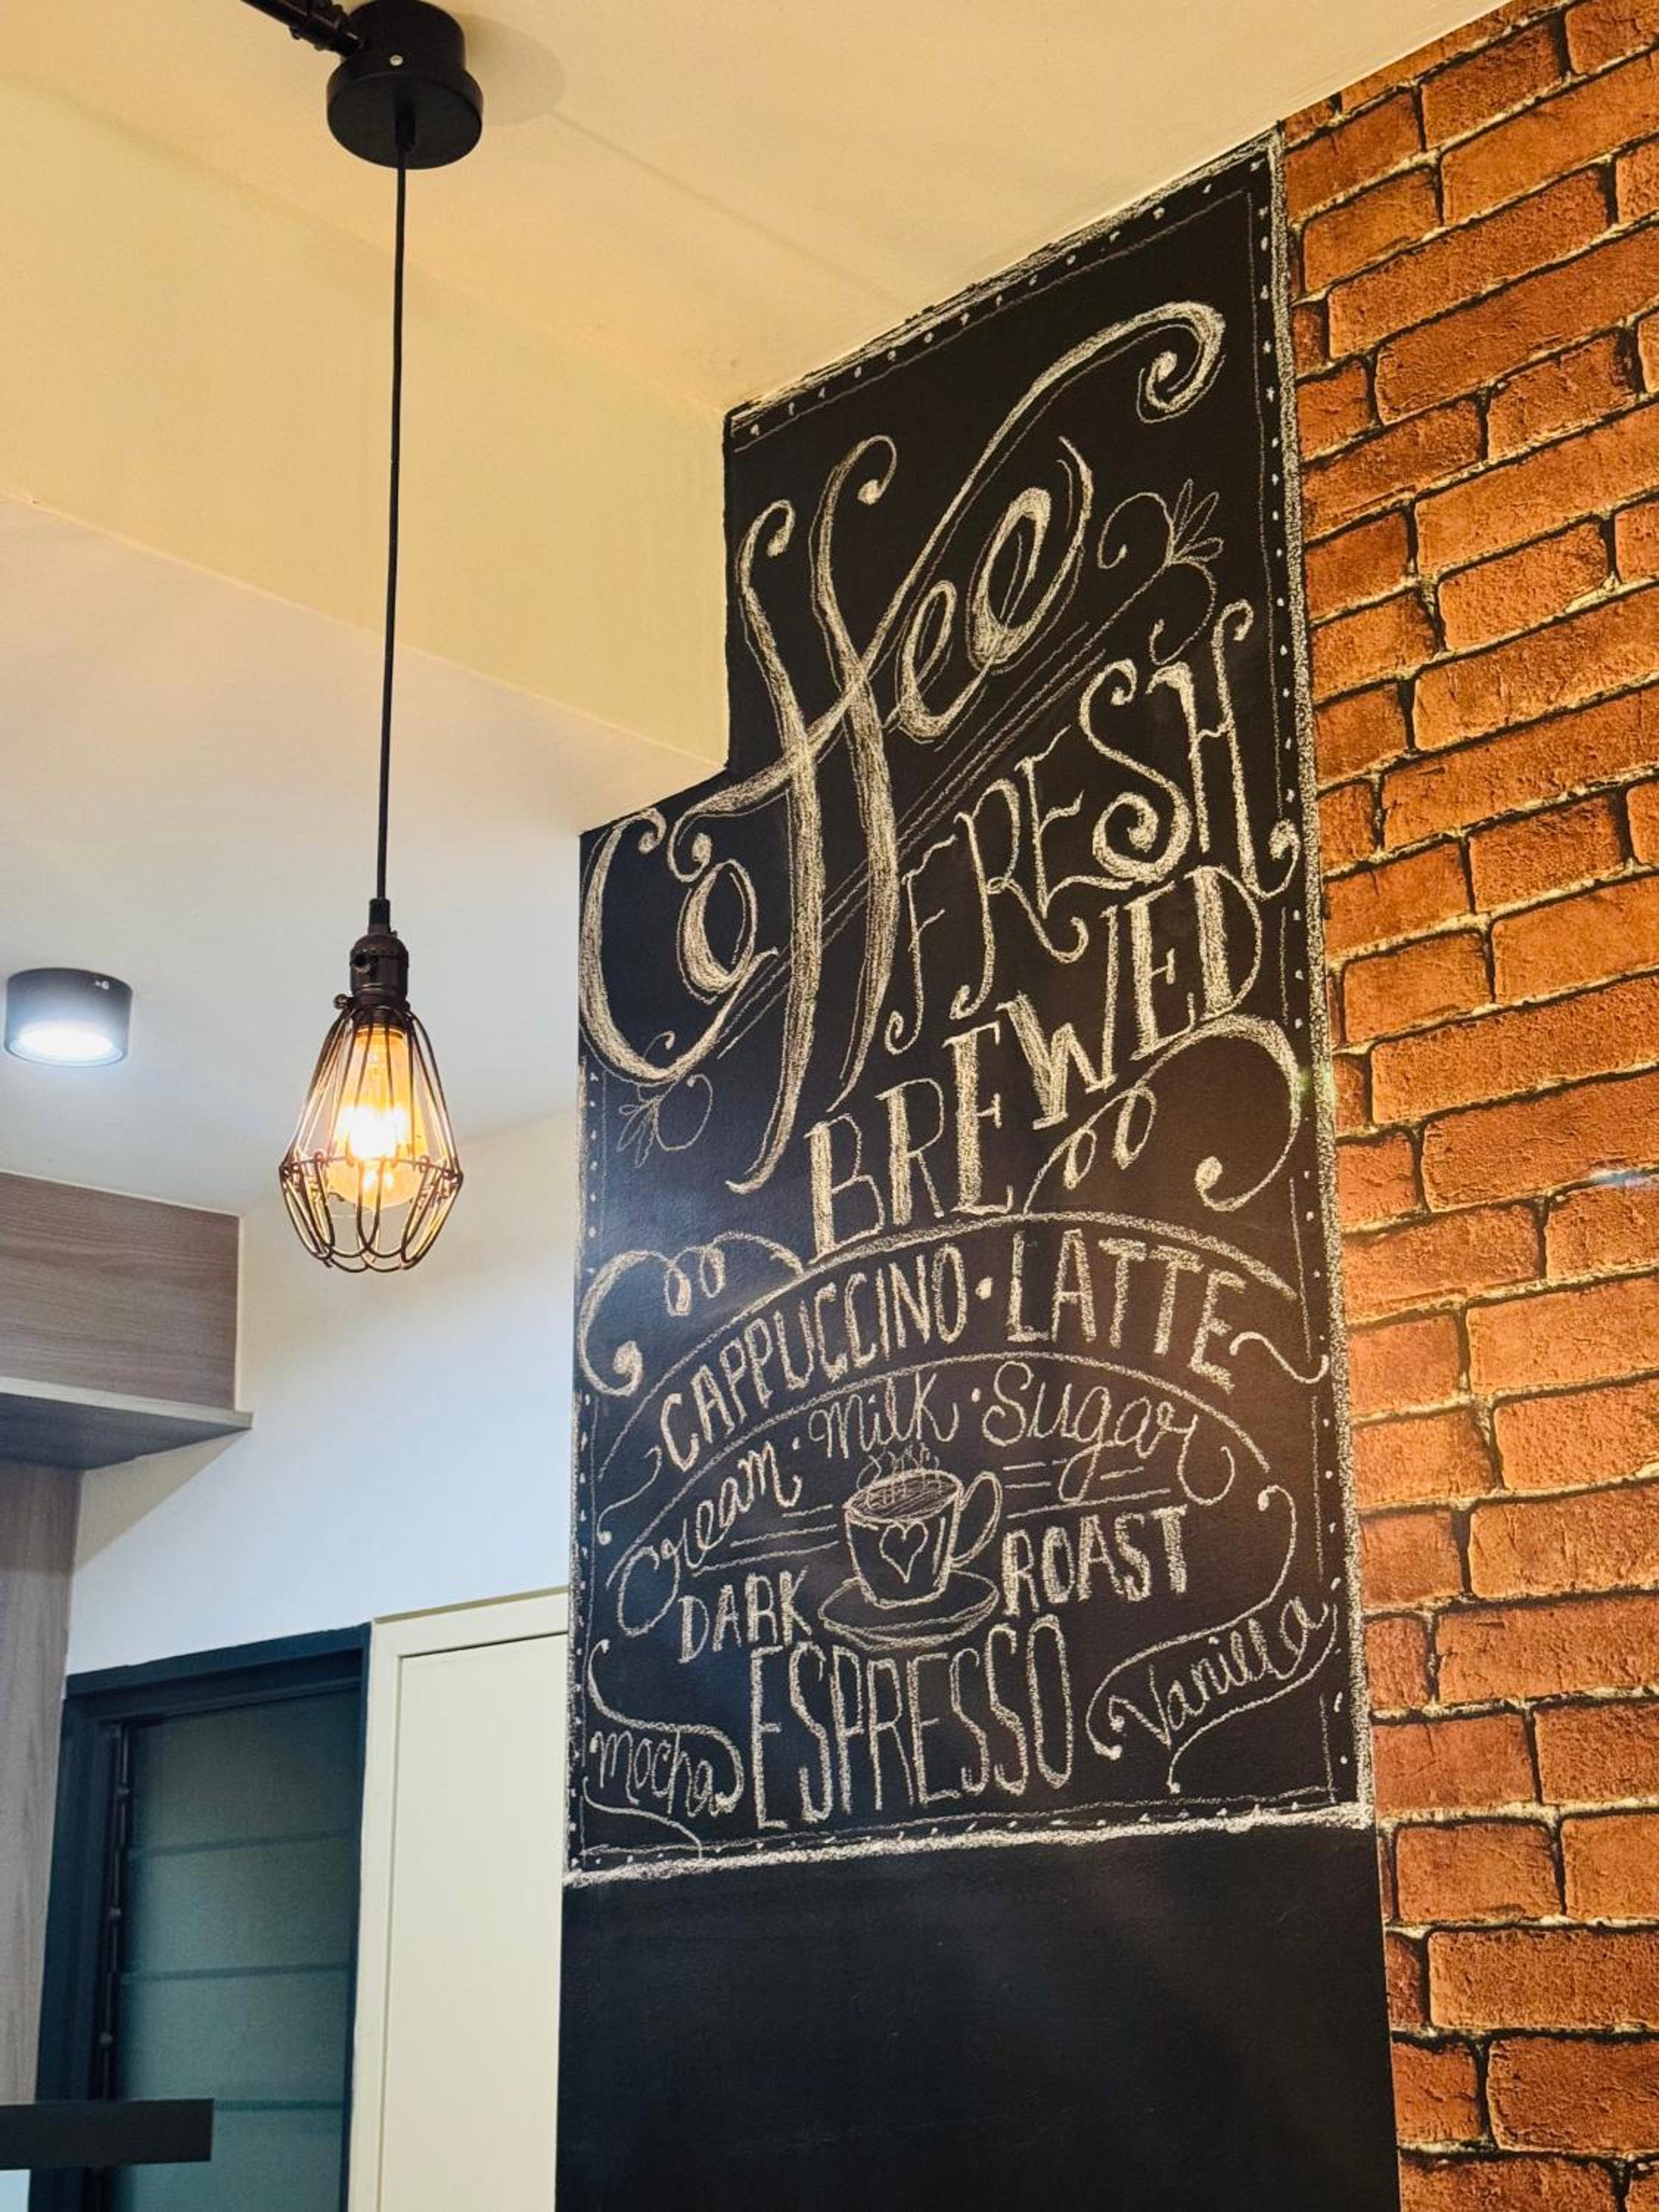 Coffee
FRESH
BREWED
CAPPUCCINO · LATTE
Cream · Milk · Sugar
DARK ROAST
ESPRESSO
Mocha
Vanilla